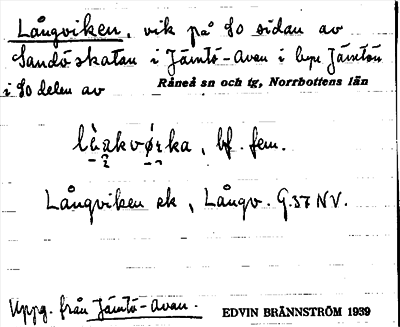 Långviken, vik på SO sidan av
Sandöskatan i Jämtö-Avan i byn Jämtön
i SO delen av Råneå sn och tg, Norrbottens län
bf. fem.
Långviken ek, Långv. G.37 NV.
Uppg. från Jämtö-Avan. EDVIN BRÄNNSTRÖM 1939